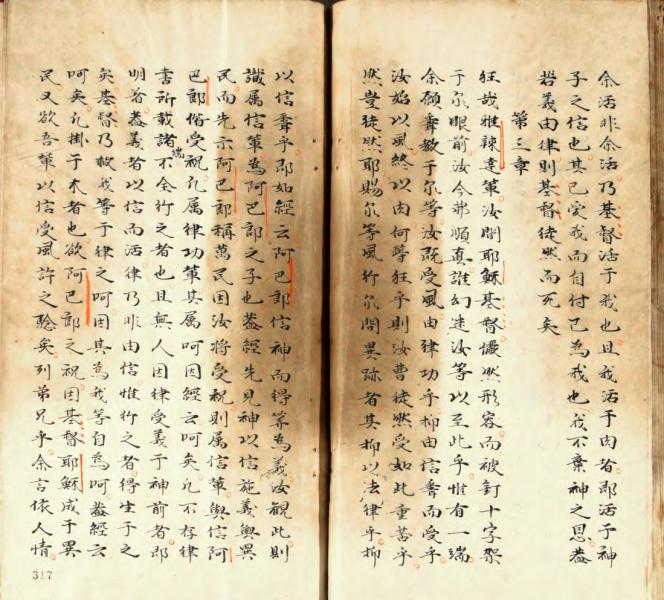 余活非余活乃基督活于我也且我活于肉者即活于神
子之信也其已愛我而自付己為我也我不棄神之恩蓋
若義由律則基督徒然而死矣
第三章
狂哉雅辣達輩汝間耶穌基督儼然形容而被釘十字架
于尔眼前汝今弗順真誰幻迷汝等以至此乎惟有一端
余願聻教于尔等汝既受風由律功乎抑由信聻而受乎
汝始以風終以肉何等狂乎則汝曹徒然受如此重苦乎
然豈徒然耶賜尔等風行尔間異跡者其抑以法律乎抑
以信聻乎即如經云阿巴郎信神而得筭為義汝觀此則
識属信輩為阿巴郎之子也蓋經先見神以信施義與異
民而先示阿巴郎稱萬民因汝將受祝則属信輩與信阿
巴郎偕受祝凢属律功輩其属呵因經云呵矣凢不存律
書所載諸端不全行之者也且無人因律受義于神前者即
明著蓋義者以信而活律乃非由信惟行之者得生于之
矣基督乃救我等于律之呵因其為我等自為呵蓋經云
呵矣凢掛于木者也欲阿巴郎之祝因基督耶穌成于異
民又欲吾輩以信受風許之騐矣列弟兄乎余言依人情
317